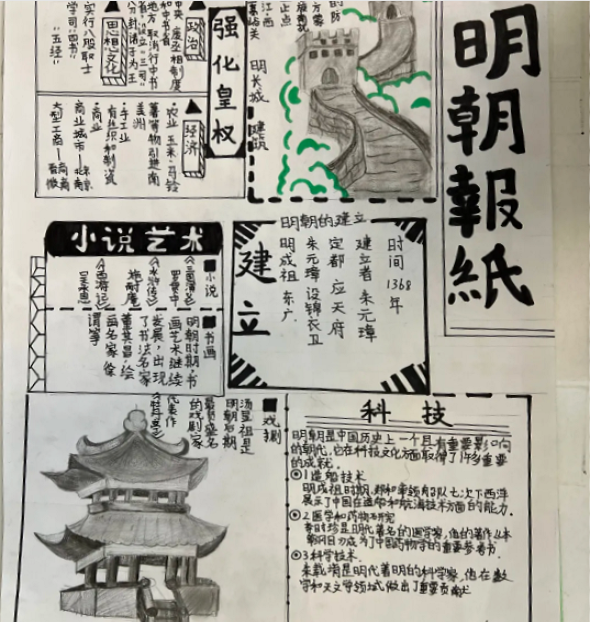 明朝報紙
强化皇权
政治
思想文化
经济
农业 玉米、马铃
薯等物引进南
美洲
手工业
有丝织和制瓷
商业
商业城市—北京
明长城
建筑
明朝的建立
建立
时间 1368年
建立者 朱元璋
定都 应天府
朱元璋 设锦衣卫
明成祖 东厂
小说艺术
小说
《三国演义》
罗贯中
《水浒传》
施耐庵
《西游记》
吴承恩
书画
明朝时期,书
画艺术继续
发展,出现
了书法名家
董其昌,绘
画名家徐
渭等
戏剧
汤显祖是
明朝后期
最负盛名
的戏剧家
代表作
《牡丹亭》
科技
明朝是中国历史上一个具有重要影响
的朝代,它在科技文化方面取得了许多重要
的成就.
1 造船技术
明成祖时期,郑和率领舟队七次下西洋
展示了中国在造船和航海技术方面的能力.
2 医学和药物研究
李时珍是明代著名的医学家,他的著作《本
草纲目》成为了中国药物学的重要参考书.
3 科学技术.
朱载堉是明代著明的科学家,他在数
学和天文学领域,做出了重要贡献